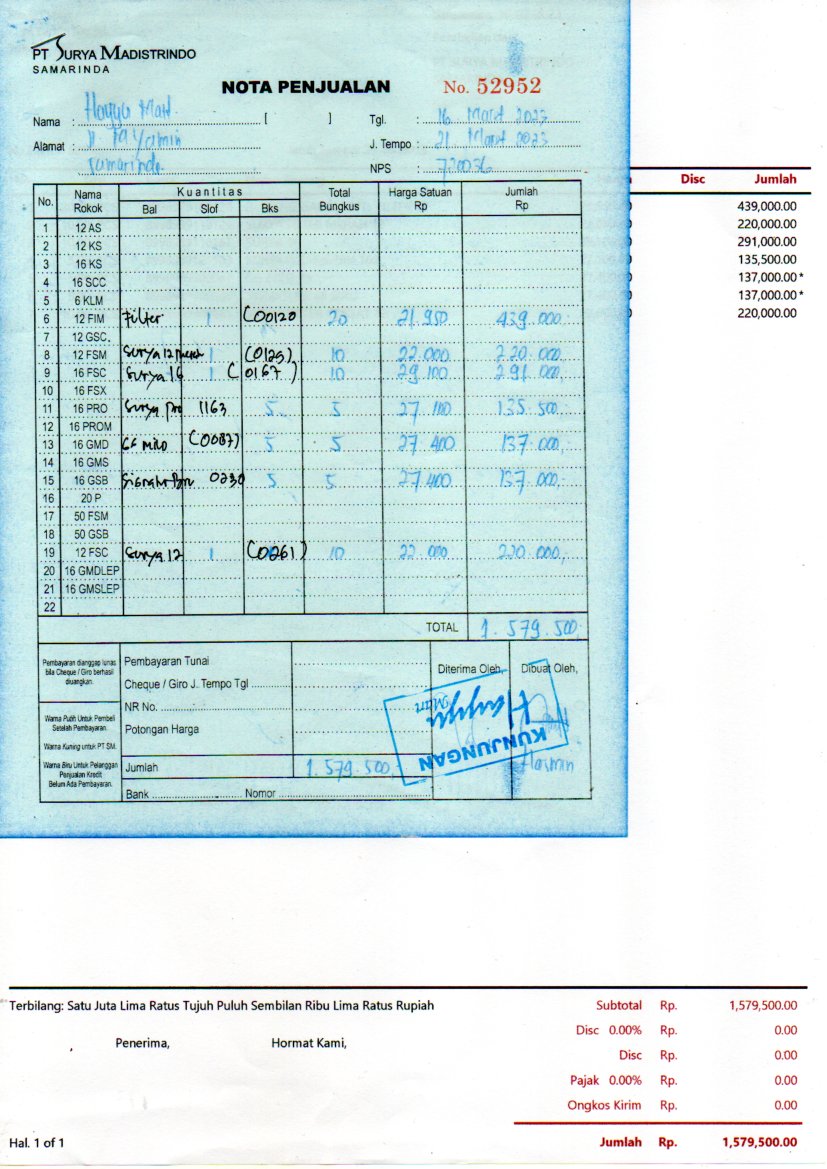 PT SURYA MADISTRINDO
SAMARINDA
NOTA PENJUALAN No. 52952
Nama : Hayyu Mart [ ] Tgl. : 16 Maret 2023
Alamat : Jl. M Yamin J. Tempo : 21 Maret 2023
Samarinda NPS : 720036
No. Nama Rokok Kuantitas Total Bungkus Harga Satuan Rp Jumlah Rp
Bal Slof Bks
1 12 AS
2 12 KS
3 16 KS
4 16 SCC
5 6 KLM
6 12 FIM Filter 1 (00120 20 21.950 439.000
7 12 GSC
8 12 FSM Surya 12 1 (0125) 10 22.000 220.000
9 16 FSC Surya 16 1 (0167) 10 29.100 291.000
10 16 FSX
11 16 PRO Surya Pro 1163 5 5 27.100 135.500
12 16 PROM
13 16 GMD GG Mild (0087) 5 5 27.400 137.000
14 16 GMS
15 16 GSB 0230 5 5 27.400 137.000
16 20 P
17 50 FSM
18 50 GSB
19 12 FSC Surya 12 1 (0261) 10 22.000 220.000
20 16 GMDLEP
21 16 GMSLEP
22
TOTAL 1.579.500
Pembayaran dianggap lunas bila Cheque / Giro berhasil diuangkan.
Warna Putih Untuk Pembeli Setelah Pembayaran.
Warna Kuning untuk PT SM.
Warna Biru Untuk Pelanggan Penjualan Kredit Belum Ada Pembayaran.
Pembayaran Tunai
Cheque / Giro J. Tempo Tgl
NR No.
Potongan Harga
Jumlah 1.579.500
Bank Nomor
Diterima Oleh, Dibuat Oleh,
Hayyu Mart
KUNJUNGAN
Hasmin
Disc Jumlah
439,000.00
220,000.00
291,000.00
135,500.00
137,000.00 *
137,000.00 *
220,000.00
Terbilang: Satu Juta Lima Ratus Tujuh Puluh Sembilan Ribu Lima Ratus Rupiah
Penerima, Hormat Kami,
Subtotal Rp. 1,579,500.00
Disc 0.00% Rp. 0.00
Disc Rp. 0.00
Pajak 0.00% Rp. 0.00
Ongkos Kirim Rp. 0.00
Hal. 1 of 1
Jumlah Rp. 1,579,500.00